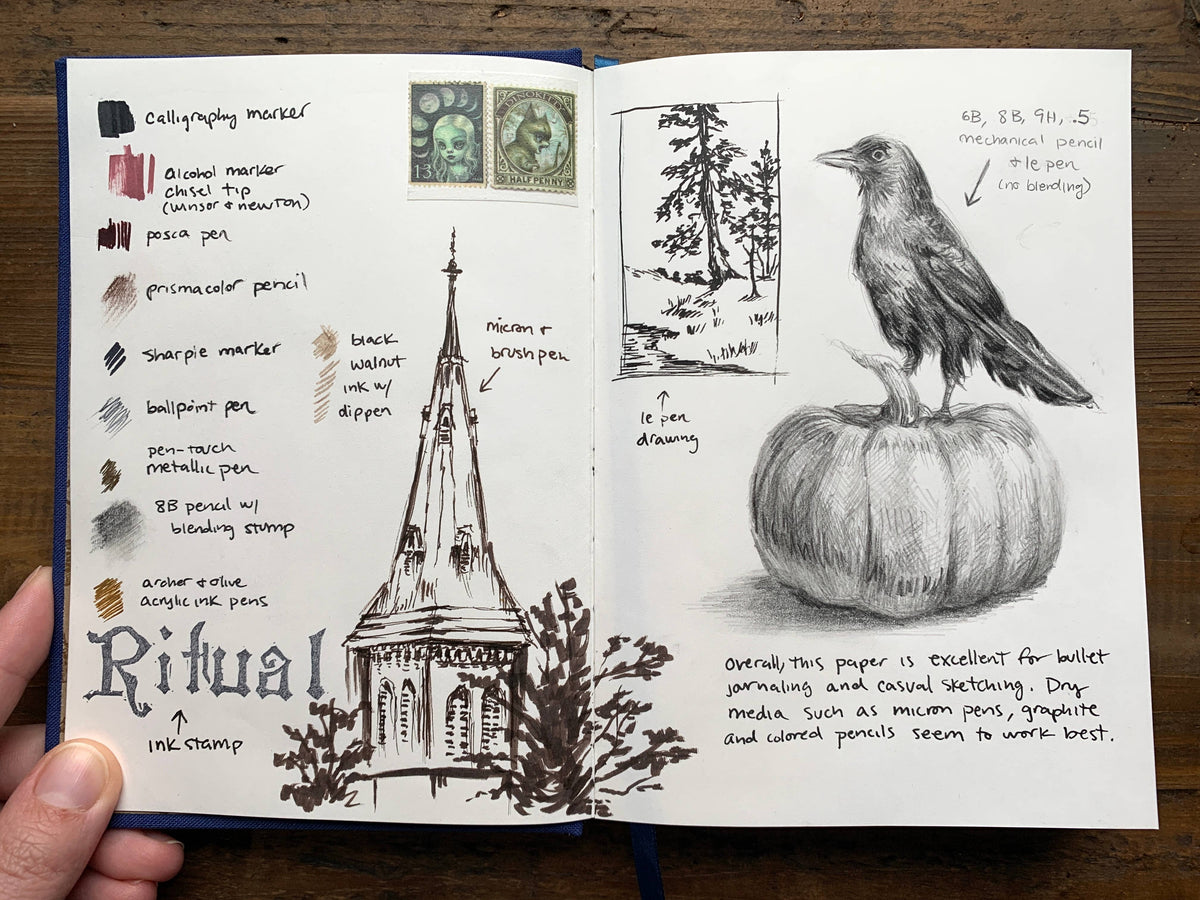 Calligraphy marker
alcohol marker
chisel tip
(winsor & newton)
posca pen
prismacolor pencil
Sharpie marker
ballpoint pen
pen-touch
metallic pen
8B pencil w/
blending stump
archer & olive
acrylic ink pens
Ritual
ink stamp
black
walnut
ink w/
dip pen
13
HALF PENNY
micron &
brush pen
le pen
drawing
6B, 8B, 9H, .5
mechanical pencil
& le pen
(no blending)
Overall, this paper is excellent for bullet
jornaling and casual sketching. Dry
media such as micron pens, graphite
and colored pencils seem to work best.